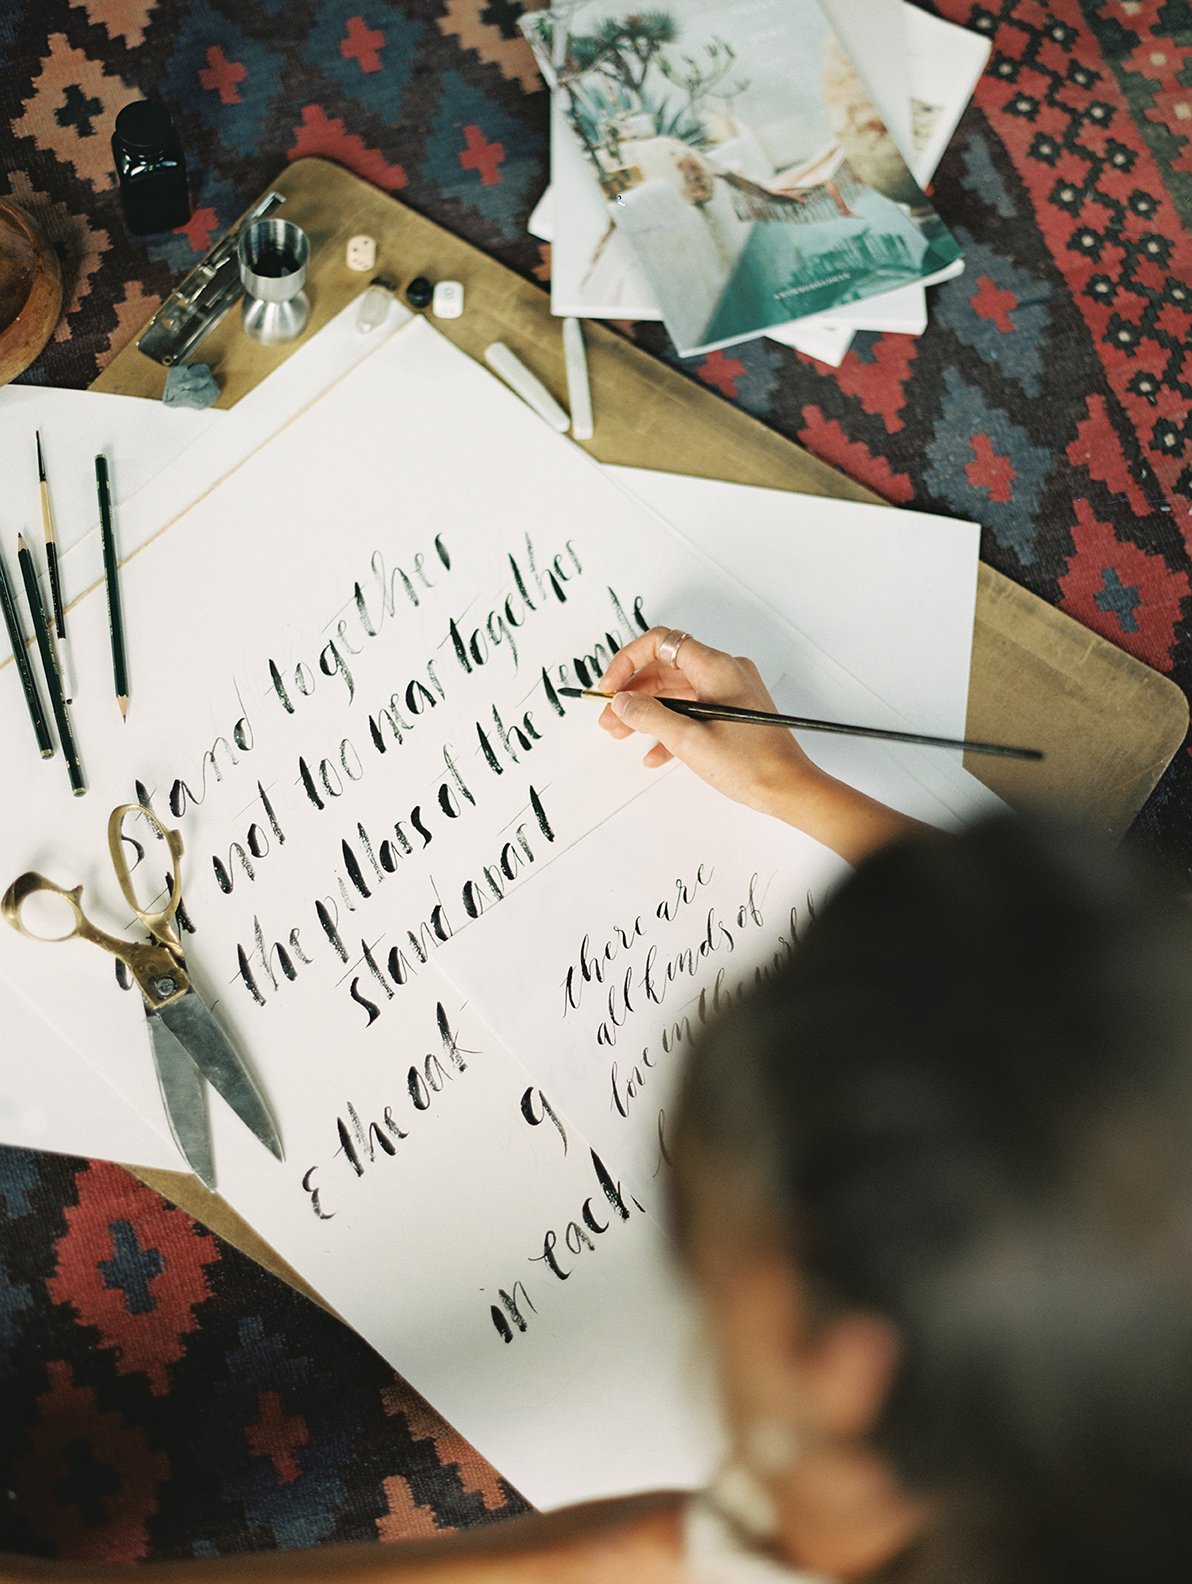 stand together
not too near together
the pillars of the temple
stand apart
& the oak
g
in each
there are
all kinds of
love in the world